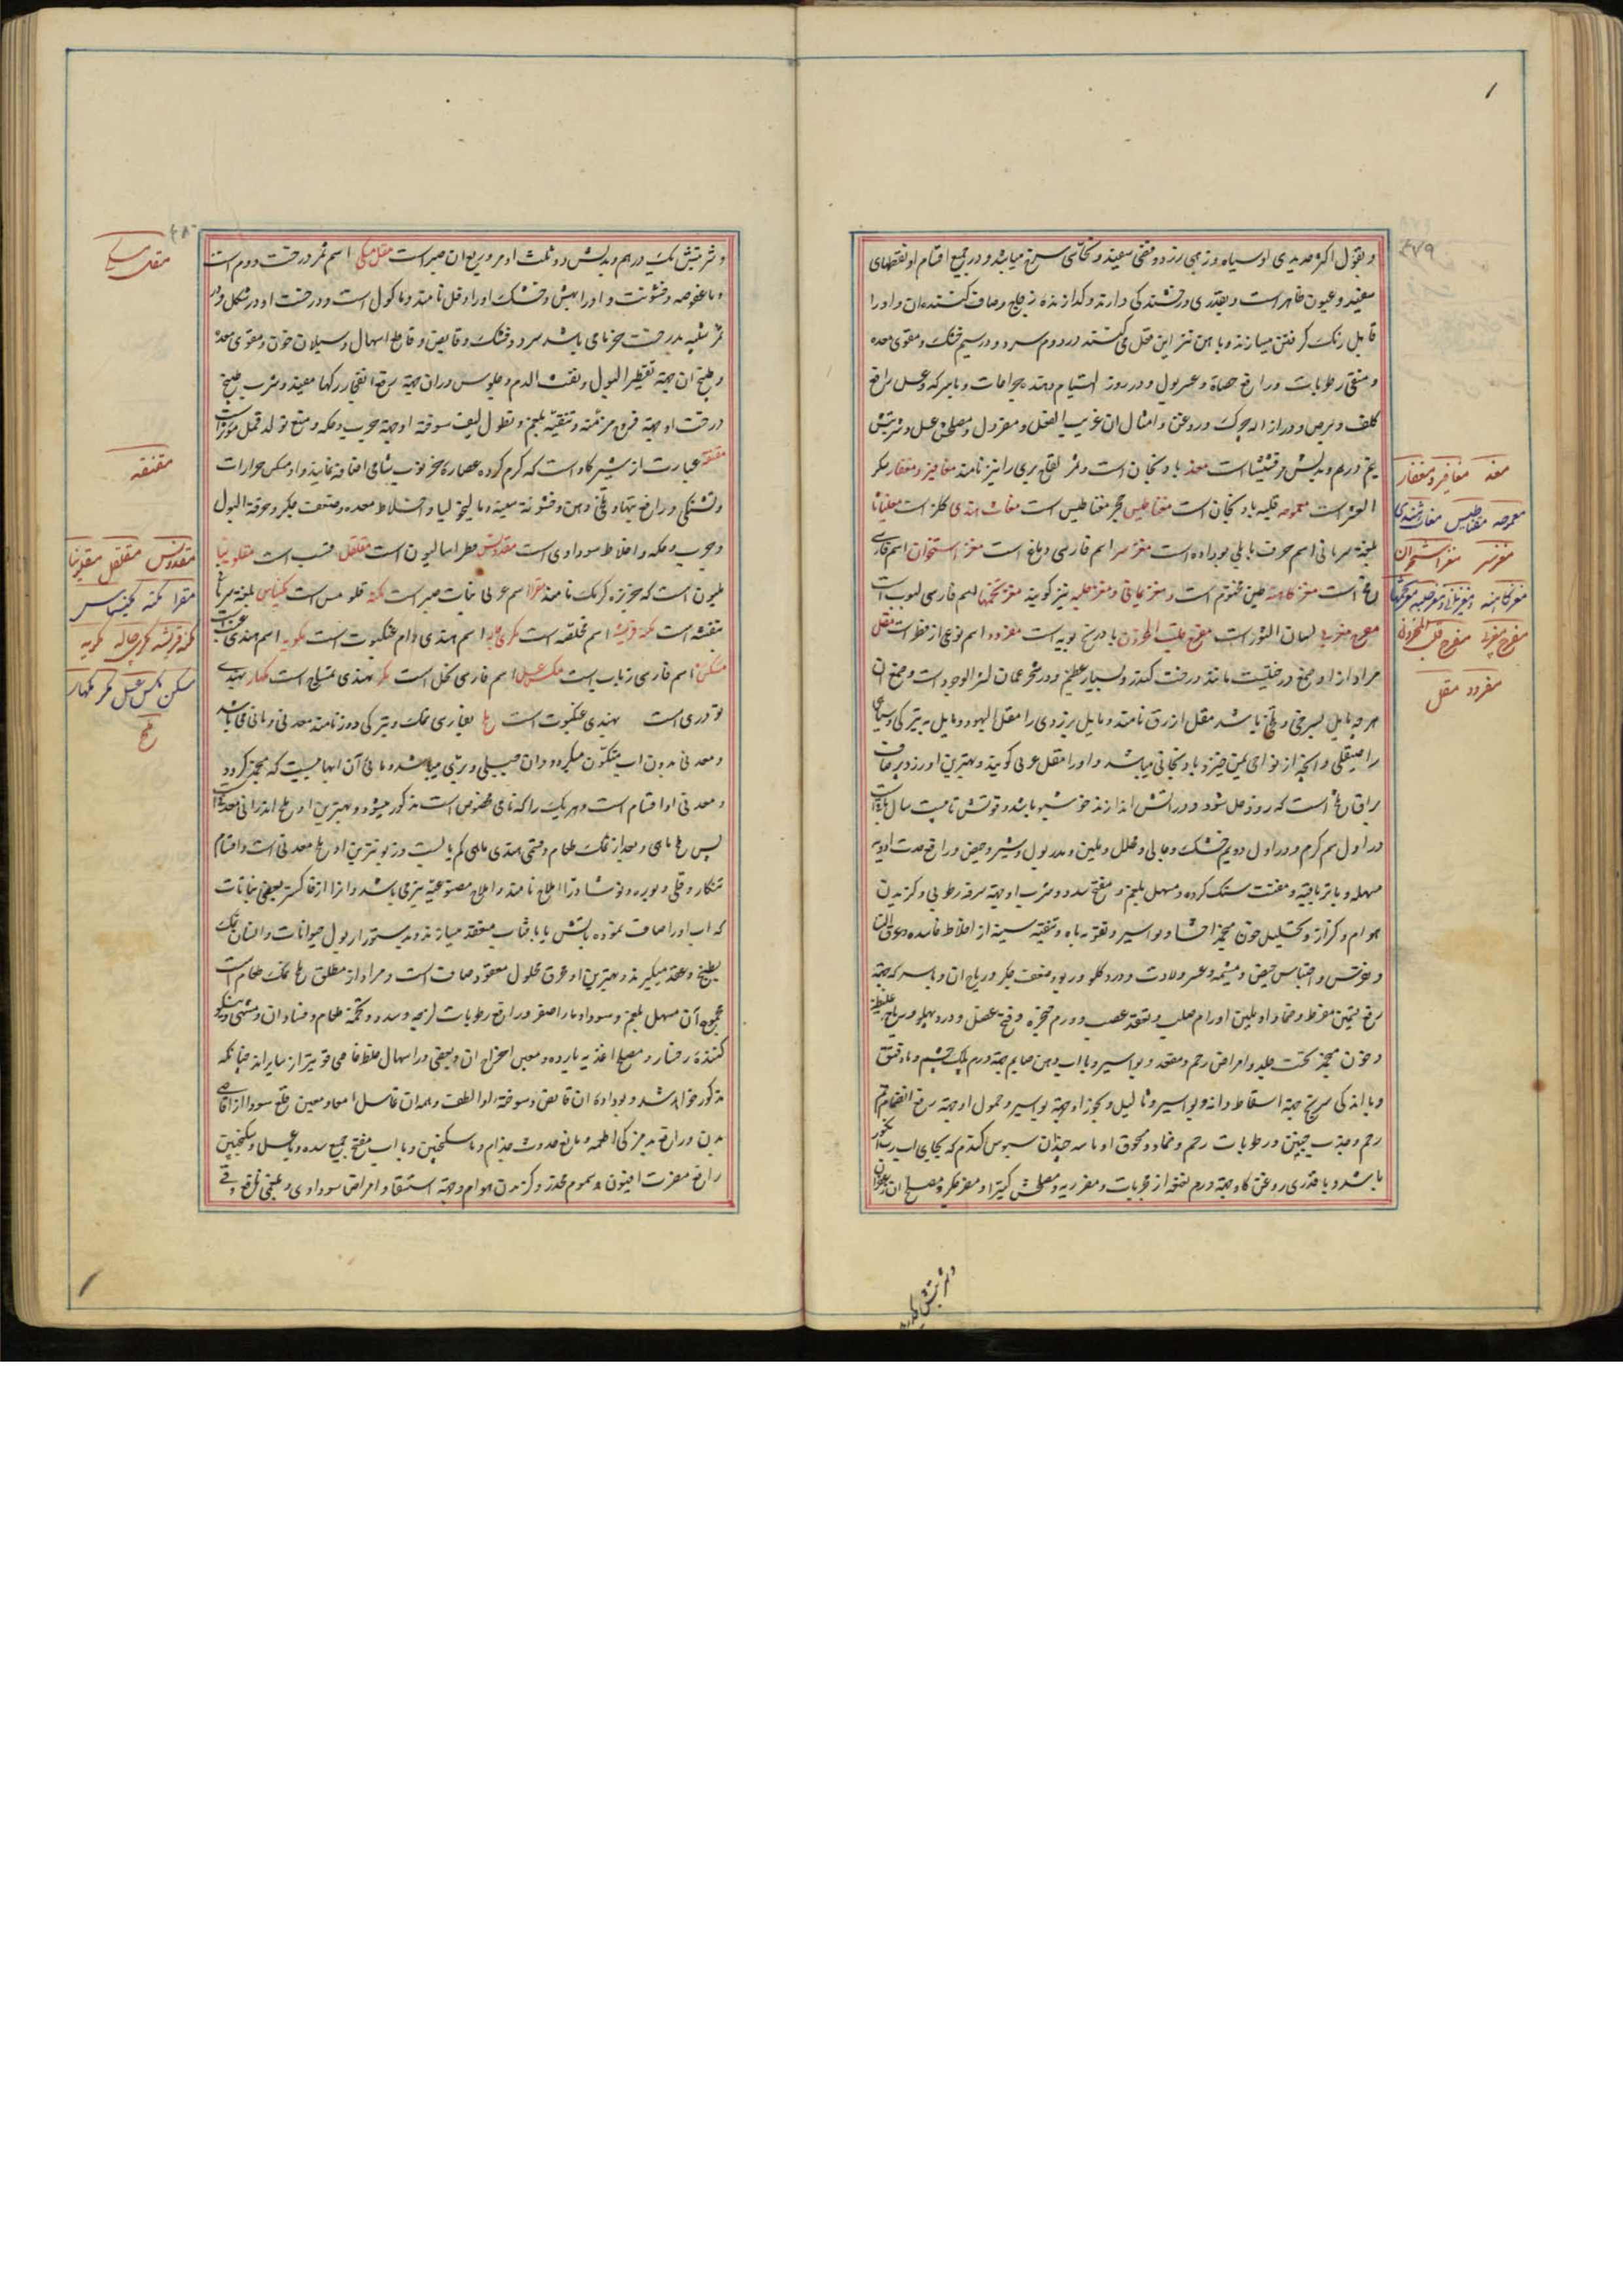 و بقول اکثر حدیدی او سیاه و ذهبی زرد و فضی سفید و نحاسی سرخ میباشد و در جمیع اقسام او نقطهای
سفید و عیون ظاهر است و بقدری درخشندکی دارند و کدازنده زجاج و صاف کننده ان و او را
قابل رنک کرفتن میسازند و باهن نیز این عمل می کنند در دوم سرد و در سیم خشک و مقوی معده
و منقی رطوبات و رافع حصاة و عسر بول و ذرور التیام دهنده جراحات و با سرکه و عسل رافع
کلف و برص و در ازاله چرک و روغن و امثال ان غریب الفعل و مصلحش عسل و شربتش
نیم درهم و بدلش مرقشیشا است مغد بادنجان است و ثمر لفاح بری را نیز نامند مغافیر و مغفار سکر
العشر است مغمومه قلیه بادنجان است مغناطیس حجر مغناطیس است مغاث هندی
بلغة سریانی اسم حرف بابلی بود مغز سر اسم فارسی دماغ است مغز استخوان اسم فارسی
مخ است مغز کاهنه طین مختوم است و مغز یمانی و مغز صلبه نیز کویند مغز تخمها اسم فارسی لبوب است
مفرح لسان الثور است مفرح قلب المحزون بادرنجبویه است مغرود اسم نوعی از فطر است مقل
مراد از او صمغ درختیست مانند درخت کندر و بسیار عظیم و در شحر عمان کثیر الوجود است و صمغ ان
هر چه مایل بسرخی و تلخ باشد مقل ازرق نامند و مایل بزردی را مقل الیهود و مایل به تیرکی و سیاهی
را صیقلی و انچه از نواحی یمن خیزد بادنجانی میباشد و او را مقل عربی کویند و بهترین او زرد صاف
براق تلخ است که زود حل شود و در اتش اندازند خوشبو باشد و قوتش تا بیست سال باقی است
در اول سیم کرم و در اول دویم خشک و جالی و محلل و ملین و مدر بول و شیر و حیض و رافع حدت ادویه
مسهله و با تریاقیة و مفتت سنک کرده و مسهل بلغم و مفتح سدد و شرب او جهة سرفه رطوبی و کزیدن
هوام و کزاز و تحلیل خون منجمد احشا و بواسیر و تقویه باه و تنقیه سینه از اخلاط فاسده و عرق النسا
و نقرس و احتباس حیض و مشیمه و عسر ولادت و درد کلو و ربو و ضعف جکر و ریاح ان و با سرکه جهة
رفع تسمین مفرط و ضماد او ملین اورام صلب و تعقد عصب و ورم حنجره و فسخ عضل و درد پهلو و ریاح غلیظه
و خون منجمد تحت جلد و امراض رحم و مقعد و بواسیر و با اب دهن صایم جهة ورم پلک چشم
و با اندکی سریع جهة اسقاط دانه بواسیر و ثالیل و بخور او جهة بواسیر و حمول او جهة رفع انضمام فم
رحم و جذب جنین و رطوبات رحم و ضماد مسحوق او با سه چندان سبوس کندم که بجای اب
باشد و با قدری روغن کاو جهة ورم انفخه از مجربات و مضر ریه و مصلحش کتیرا و مضر جکر و مصلح ان زعفران
مغد مغافیر و مغفار
مغمومه مغناطیس مغاث هندی
مغز سر مغز استخوان
مغز کاهنه
مغرود مقل
و شربتش یک درهم و بدلش دو ثلث او مر و ربع ان صبر است مقل مکی اسم ثمر درخت دوم است
و با عفوصه و خشونت و او را بهش و خشک او را وقل نامند و ماکول است و درخت او در شکل و در
ثمر شبیه بدرخت خرما می باشد سرد و خشک و قابض و قاطع اسهال و سیلان خون و مقوی معده
و طبیخ ان جهة تقطیر البول و نفث الدم و جلوس در ان جهة رفع انفجار رکها مفید و شرب طبیخ
درخت او جهة قروح مزمنه و تنقیه بلغم و نطول لیف سوخته او جهة جرب و حکه و منع تولد قمل موثر است
مقنقه عبارت از شیر کاو است که کرم کرده عصاره خرنوب شامی اضافه نمایند و او مسکن حرارات
و تشنکی و رافع تبها و تلخی دهن و خشونة سینه و مالیخولیا و اختلاط معده و ضعف جکر و حرقة البول
و جرب و حکه و اخلاط سوداوی است مقدونس فطراسالیون است مقلقل قنب است مقلونیا
ملیون است که خربزه کرمک نامند مقرا اسم عربی نبات صبر است
بنفشه است مکه قرشیه اسم مخلصه است مکری جاله اسم هندی دام عنکبوت است مکویه اسم هندی عنب الثعلب است
مسکن اسم فارسی ذباب است مکس عسل اسم فارسی نحل است مکر بهندی تمساح است مکهار بهندی
تودری است بهندی عنکبوت است ملح بفارسی نمک و بترکی دوز نامند معدنی و مائی می باشد
و معدنی بدون اب متکون میکردد و ان جبلی و بری میباشد و مائی آن ابهائیست که منجمد کردد
و معدنی او اقسام است و هر یک را که نامی مخصوص است مذکور میشود و بهترین او ملح اندرانی معدنی است
پس ملح مائی و بعد از نمک طعام و نفطی هندی مائی کم یابست و زبونترین او ملح معدنی است و اقسام
تنکار و قلی و بوره و نوشادر را املاح نامند و املاح مصنوعیه نیز می باشد و انرا از خاکستر بعضی نباتات
که اب او را صاف نموده باتش یا بافتاب منعقد میسازند و بدستور از بول حیوانات و انسان نمک
بطبخ و عقد میکیرند و بهترین او محرق محلول معقود صاف است و مراد از مطلق ملح نمک طعام است
مجموع آن مسهل بلغم و سودا و ماء اصفر و رافع رطوبات لزجه و سدد و تخمه طعام و فساد ان و مشهی و نیکو
کننده رخسار و مصلح اغذیه بارده و معین اخراج ان و بعضی در اسهال خلط خاصی قویتر از سایراند چنانکه
مذکور خواهد شد و بوداده ان قابض و سوخته او الطف و همه ان غاسل امعا و معین قلع سودا از اقاصی
بدن و رافع بدمزکی اطعمه و مانع حدوث جذام و با سکنجبین و با اب مفتح جمیع سده و با عسل و سکنجبین
رافع مضرت افیون و سموم مخدره و کزیدن هوام و جهة استسقا و امراض سوداوی و بلغمی نافع و قی
مقل مکی
مقنقه
مقدونس مقلقل مقلونیا
مکه قرشیه مکری جاله مکویه
مسکن مکس عسل مکر مکهار
ملح